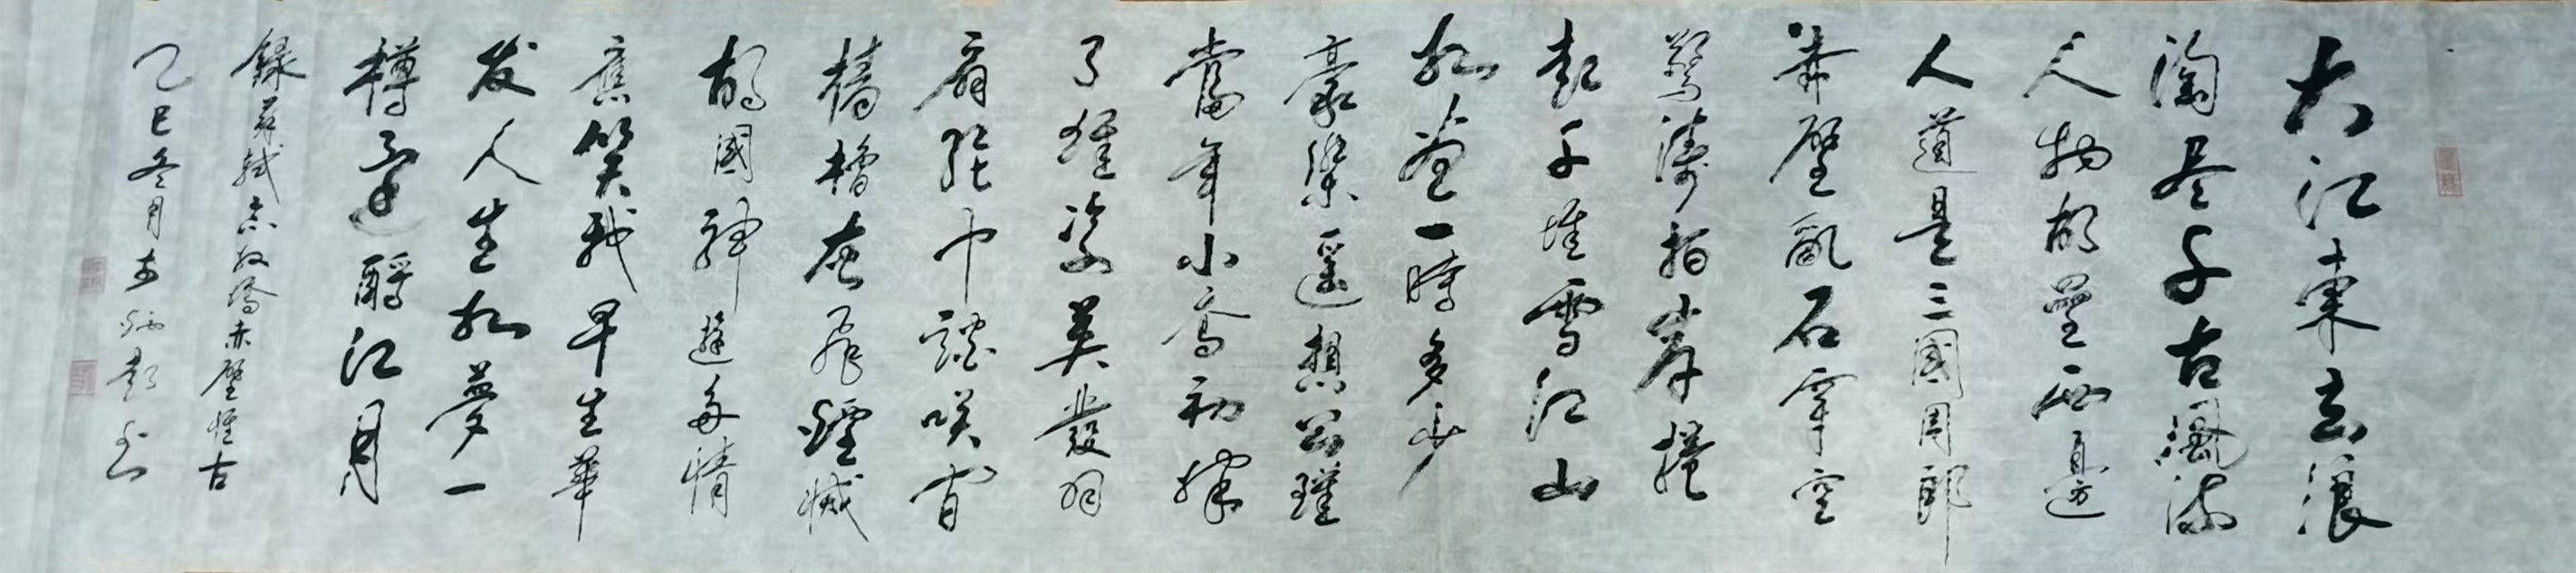 大江東去浪
淘尽千古風流
人物故壘西邊
人道是三國周郎
赤壁亂石穿空
驚濤拍岸捲
起千堆雪江山
如畫一時多少
豪傑遥想公瑾
當年小喬初嫁
了雄姿英發羽
扇綸巾談咲间
檣櫓灰飛煙滅
故國神遊多情
應笑我早生華
发人生如夢一
樽還酹江月
録苏軾念奴嬌赤壁懷古
乙巳冬月书